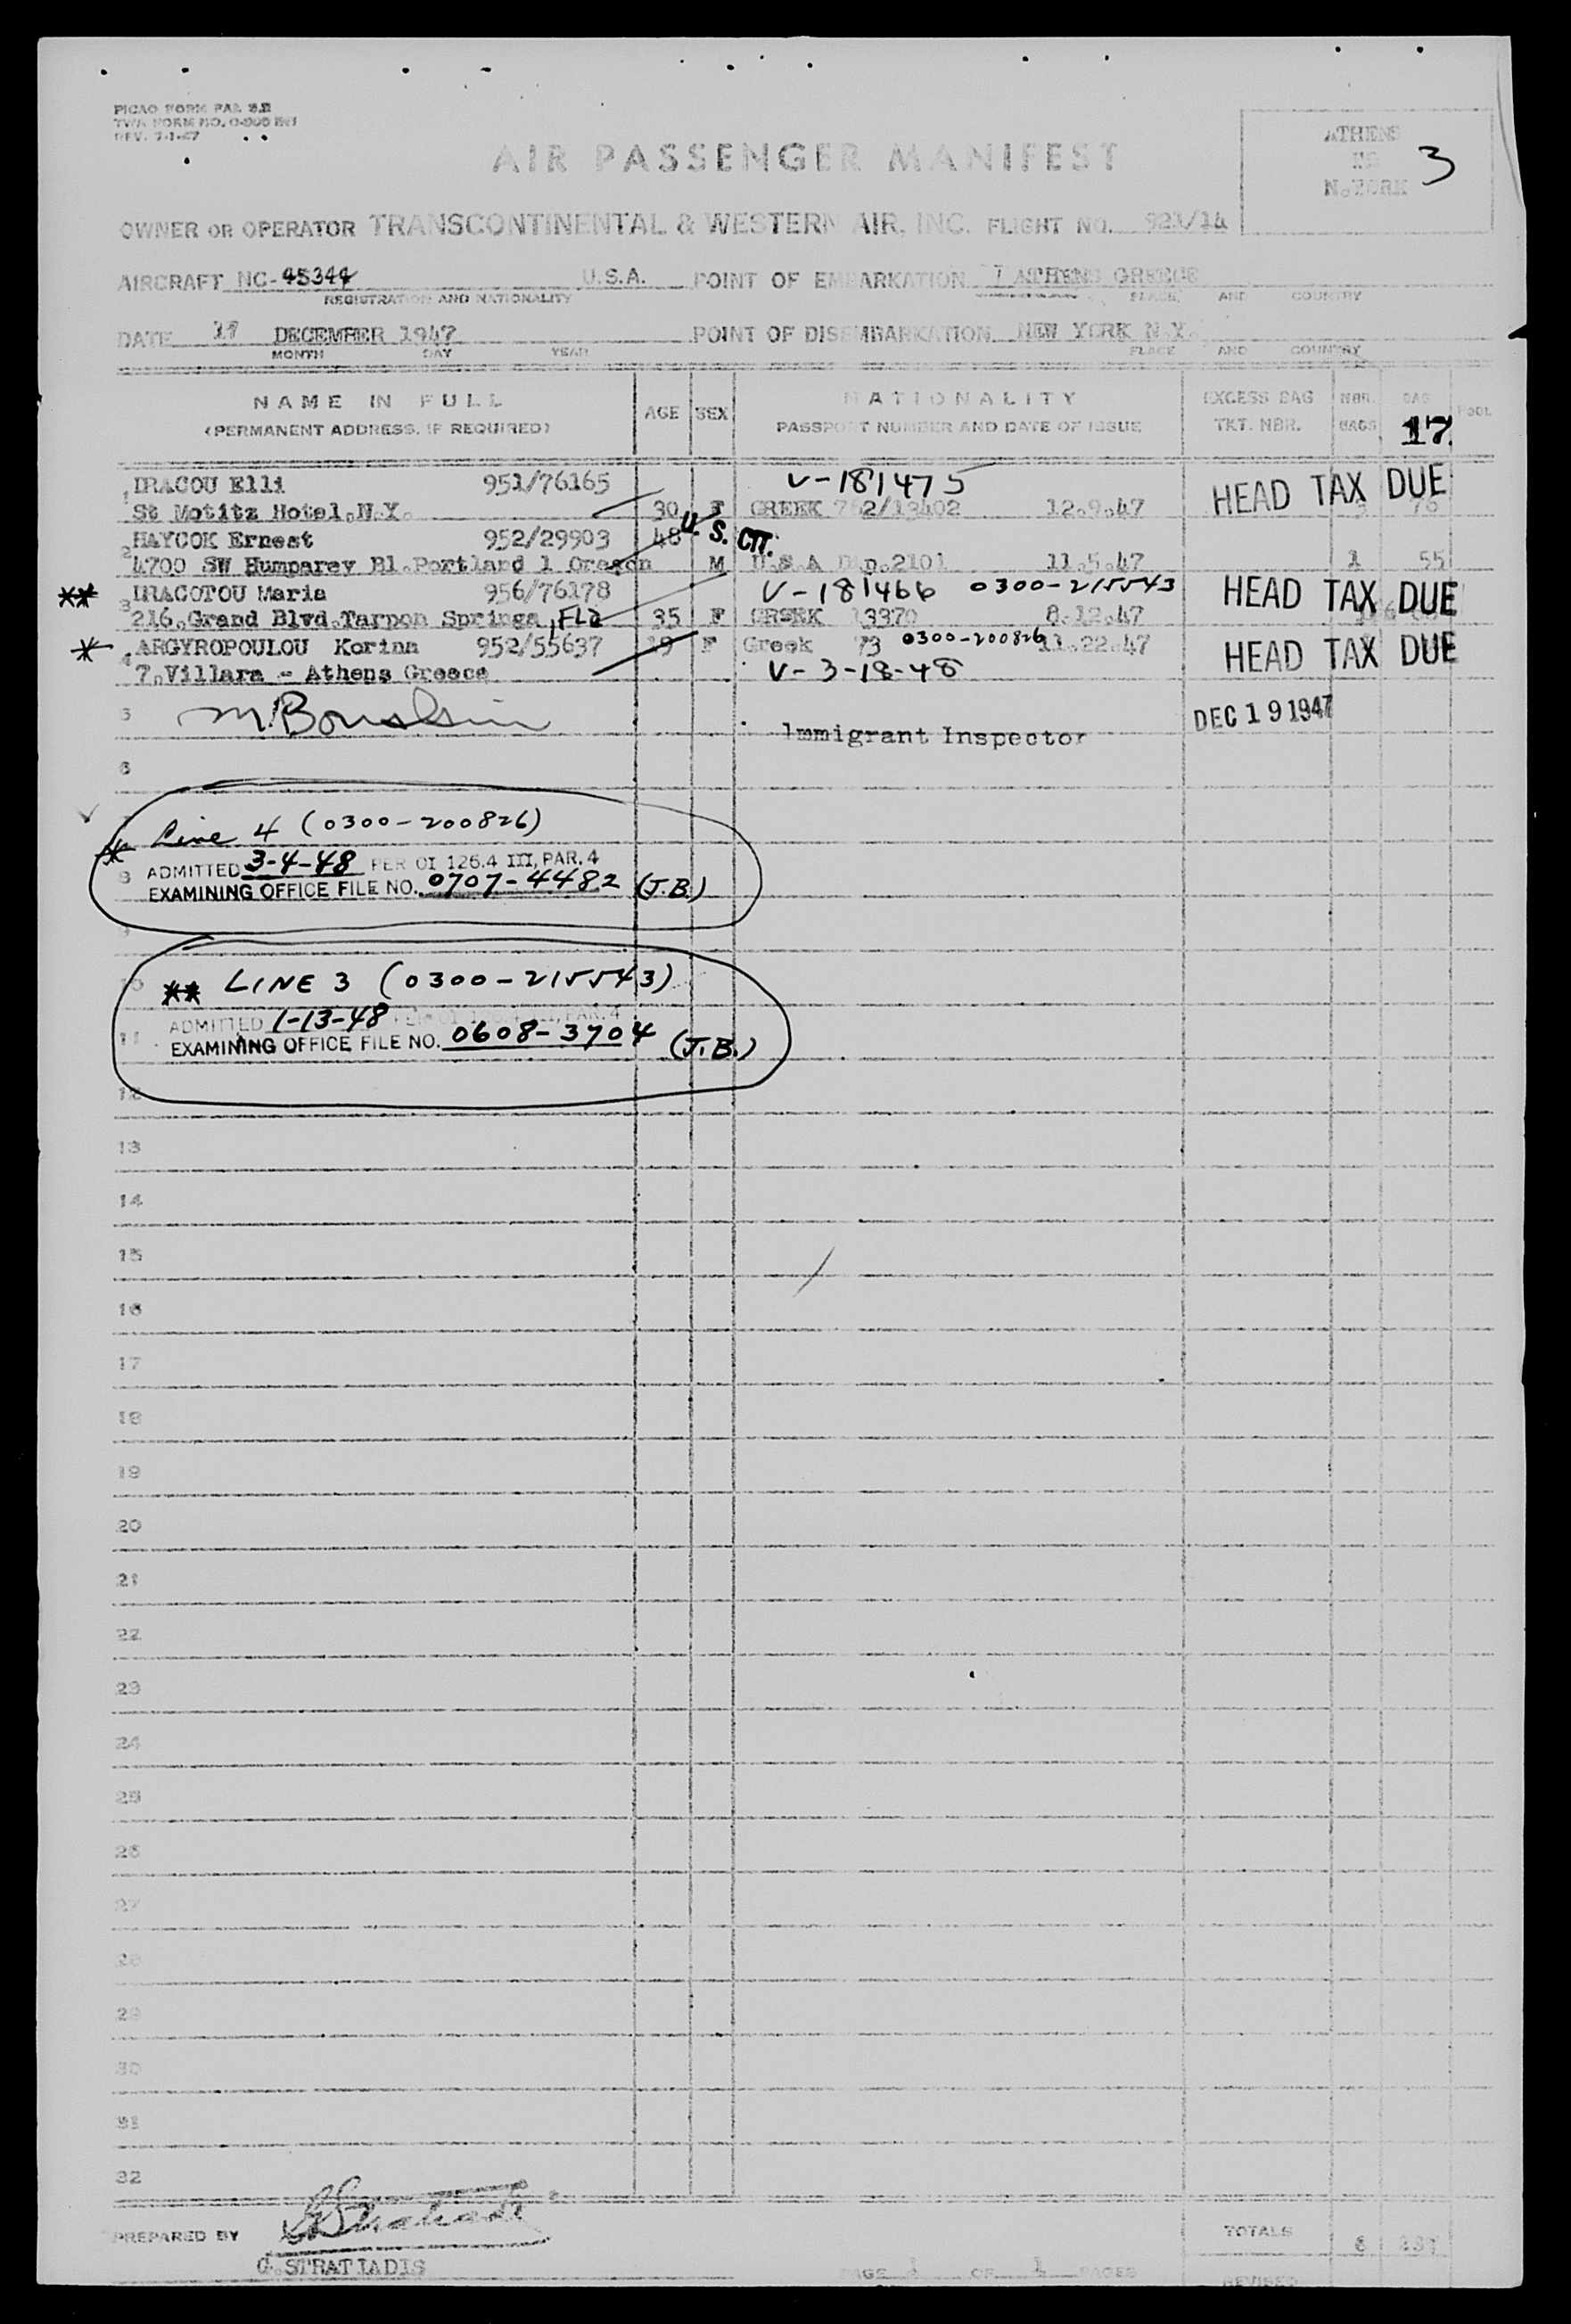 PICAO FORM PAL 2.2
REV. 7-1-47
AIR PASSENGER MANIFEST
ATHENS
N.YORK
3
OWNER OR OPERATOR TRANSCONTINENTAL & WESTERN AIR, INC. FLIGHT NO. 921/14
AIRCRAFT NC-45344 U.S.A. POINT OF EMBARKATION ATHENS GREECE
REGISTRATION AND NATIONALITY PLACE AND COUNTRY
DATE 17 DECEMBER 1947 POINT OF DISEMBARKATION NEW YORK N.Y.
MONTH DAY YEAR PLACE AND COUNTRY
NAME IN FULL AGE SEX NATIONALITY EXCESS BAG NBR. BAG POOL
(PERMANENT ADDRESS, IF REQUIRED) PASSPORT NUMBER AND DATE OF ISSUE TKT. NBR. BAGS 17.
1 IRACOU Elli 951/76165 V-181475 HEAD TAX DUE
St Motitz Hotel.N.Y. 30 F GREEK 762/13402 12.9.47
2 HAYCOK Ernest 952/29903 48 U.S. CIT.
4700 SW Humparey Bl.Portland 1 Oregon M U.S.A 2101 11.5.47 1 55
** 3 IRACOTOU Maria 956/76178 V-181466 0300-215543 HEAD TAX DUE
216.Grand Blvd.Tarpon Springs, Fla 35 F GREEK 13370 8.12.47
* 4 ARGYROPOULOU Korinn 952/55637 19 F Greek 73 0300-200826 11.22.47 HEAD TAX DUE
7.Villara - Athens Greece V-3-18-48
5 DEC 19 1947
Immigrant Inspector
6
* Line 4 (0300-200826)
8 ADMITTED 3-4-48 PER OI 126.4 III, PAR. 4
EXAMINING OFFICE FILE NO. 0707-4482 (J.B.)
9
10 ** LINE 3 (0300-215543)
11 ADMITTED 1-13-48 PAR. 4
EXAMINING OFFICE FILE NO. 0608-3704 (J.B.)
12
13
14
15
16
17
18
19
20
21
22
23
24
25
26
27
28
29
30
31
32
PREPARED BY TOTALS
G. STRATIADIS
PAGE 1 OF 1 PAGES
REVISED